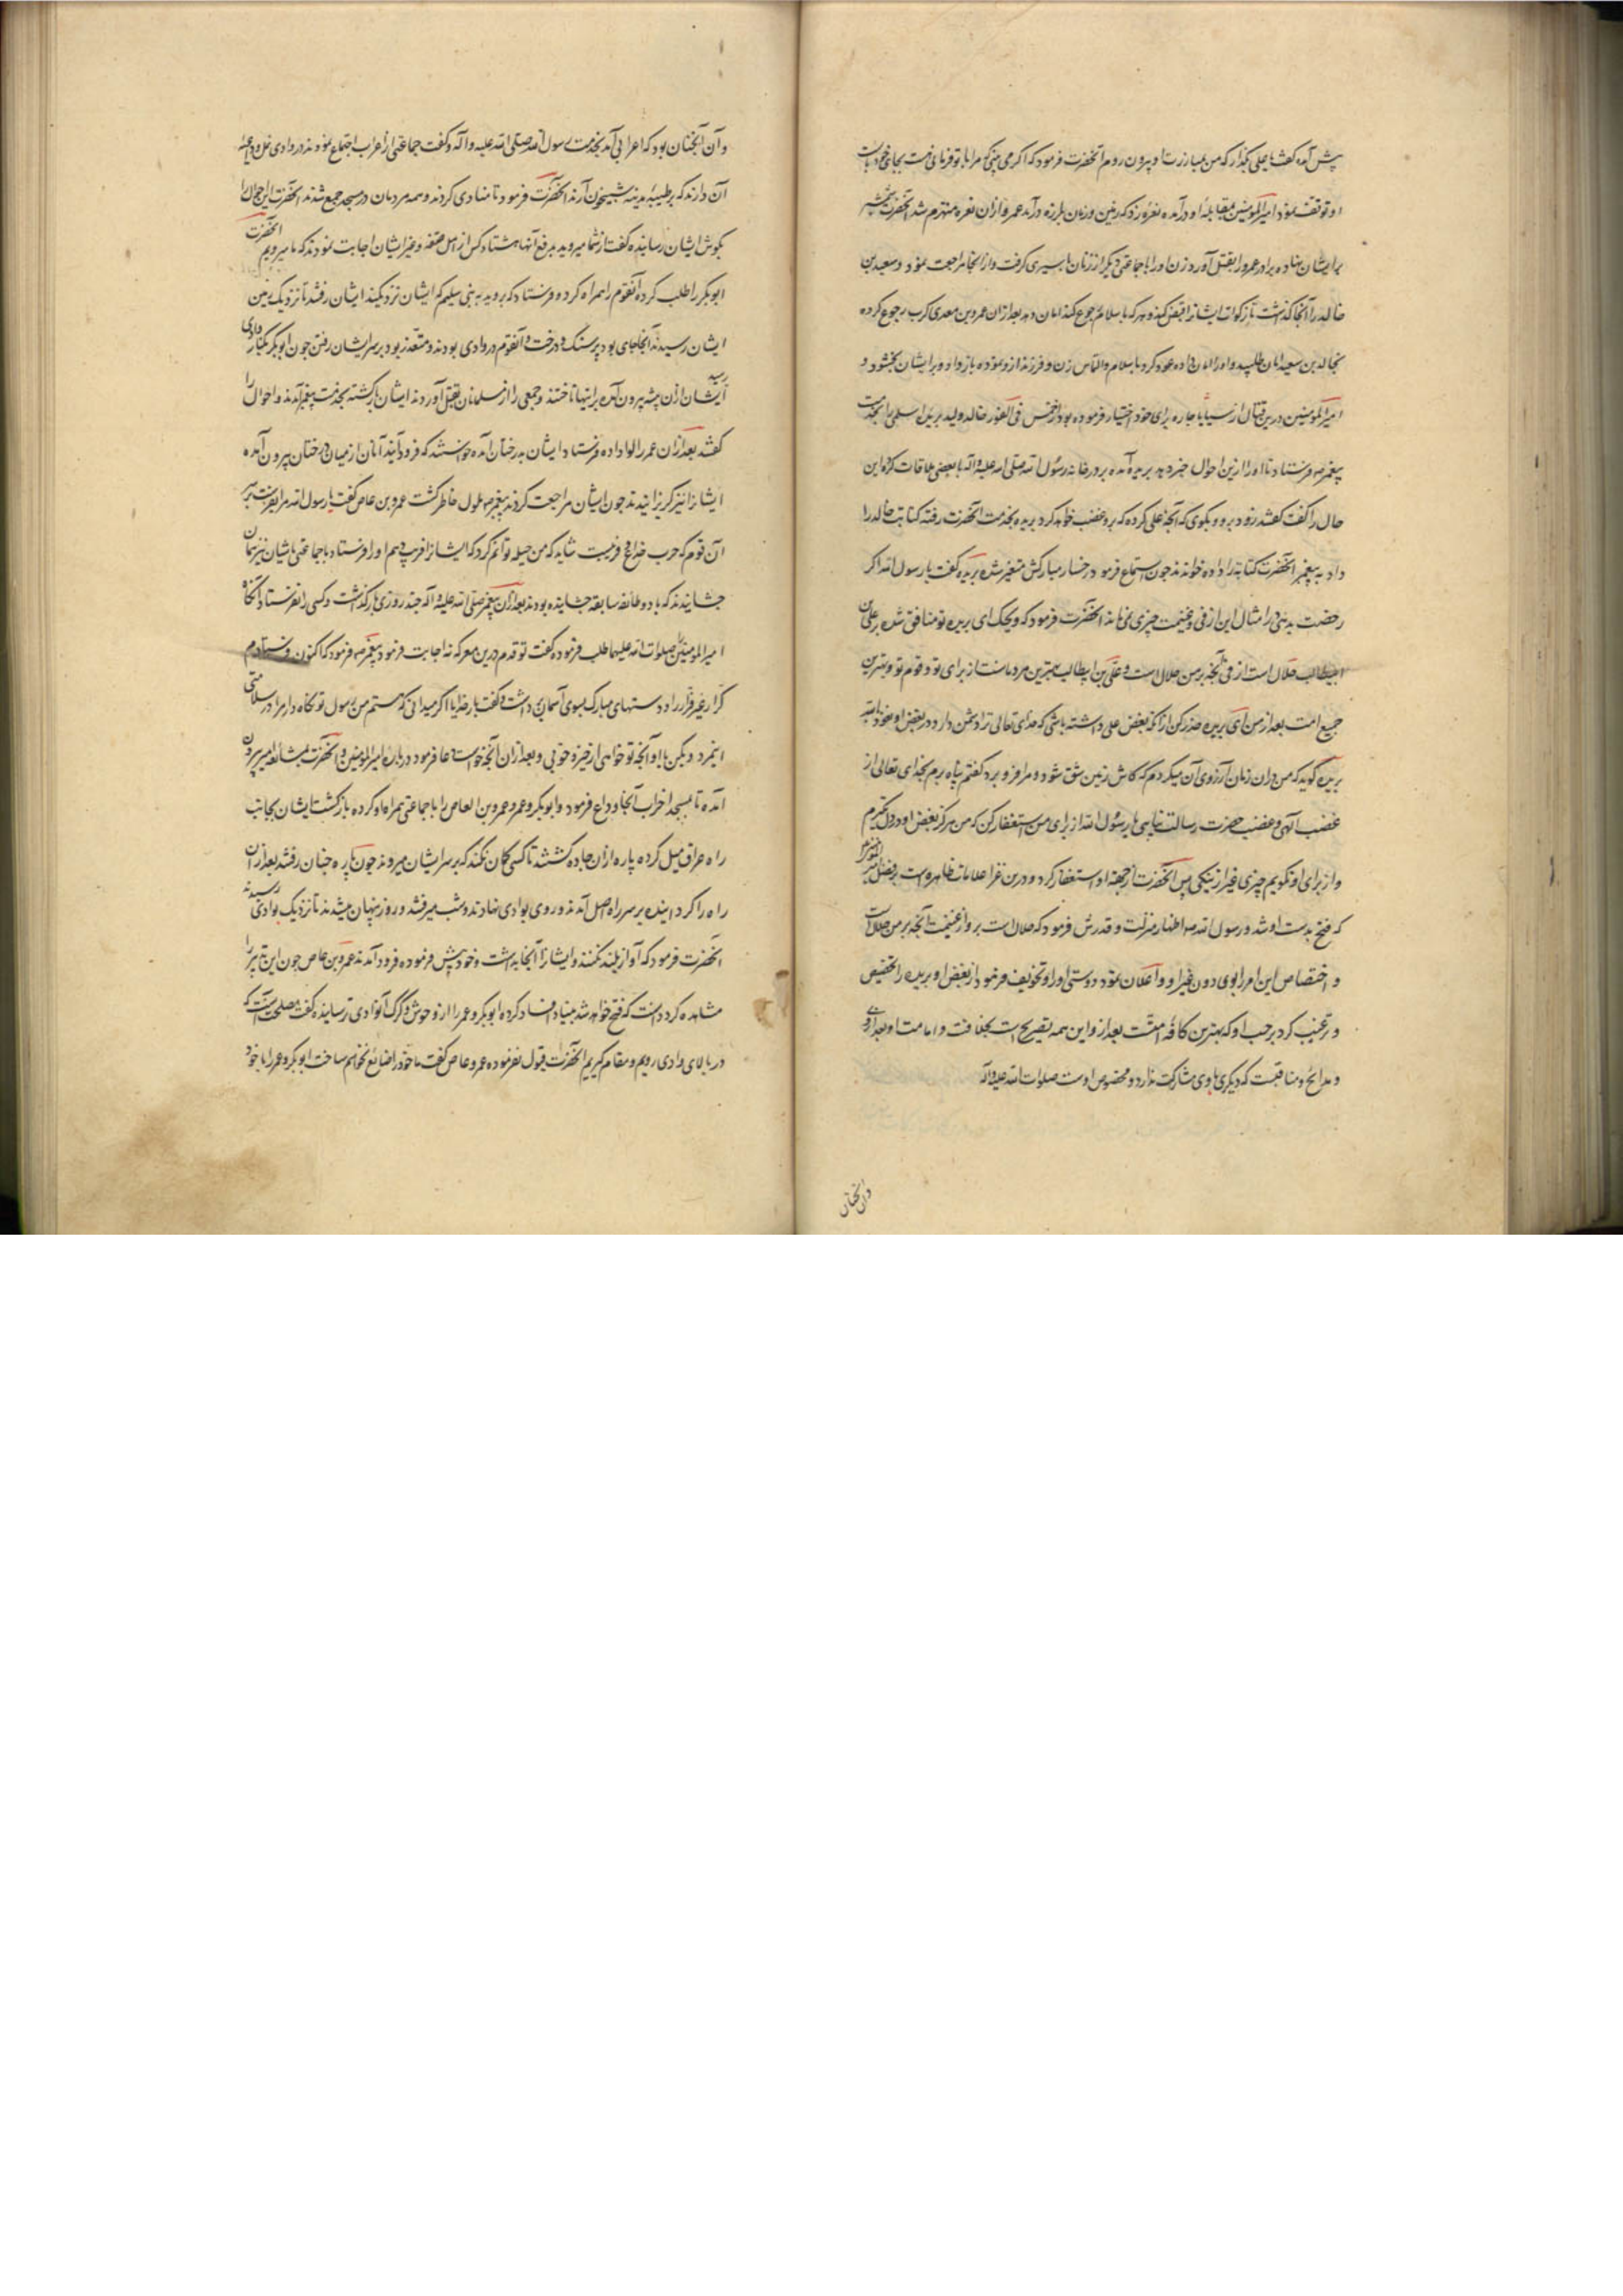 پیش آمده گفت یا علی بگذار که من بمبارزت او بیرون روم آنحضرت فرمود که اگر می بینی که مرا با تو فرمانی هست بجای خود باست
او توقف نمود امیرالمومنین بمقابله او درآمده نعره زد که زمین و زمان بلرزه درآمد عمرو ازان نعره منهزم شد آنحضرت شمشیر
برایشان نهاده برادر عمرو را بقتل آورد و زن او را با جماعتی دیگر از زنان باسیری گرفت و از انجا مراجعت نمود و سعید بن
خالد را آنجا گذاشت تا زکوات ایشانرا قبض کند و هر که باسلام رجوع کند امان دهد بعد ازان عمرو بن معدی کرب رجوع کرده
بخالد بن سعید امان طلبید و او را امان داده عود کرد باسلام و التماس زن و فرزند ازو نموده باز داد و برایشان بخشود و
امیرالمومنین درین قتال از سبایا جاریه برای خود اختیار فرموده بود از خمس فی الفور خالد ولید بریده اسلمی را بخدمت
پیغمبر فرستاد تا او را ازین احوال خبر دهد بریده آمده بر در خانه رسول الله صلی الله علیه و آله با بعضی ملاقات کرده این
حال را گفت گفتند زود برو و بگوی که آنچه علی کرده که برو غضب خواهد کرد بریده بخدمت آنحضرت رفته کتابت خالد را
داد به پیغمبر آنحضرت کتابة را داده خواندند چون استماع فرمود رخسار مبارکش متغیر شده بریده گفت یا رسول الله اگر
رخصت بدهی در امثال این از فی و غنیمت چیزی نمی ماند آنحضرت فرمود که ویحک ای بریده تو منافق شده بر علی بن
ابیطالب حلال است از فی آنچه بر من حلال است و علی بن ابیطالب بهترین مردمانست از برای تو و قوم تو و بهترین
جمیع امت بعد از من ای بریده حذر کن از آنکه بغض علی داشته باشی که خدای تعالی ترا دشمن دارد در بغض او نعوذ بالله
بریده گوید که من دران زمان آرزوی آن میکردم که کاش زمین شق شود و مرا فرو برد گفتم پناه برم بخدای تعالی از
غضب الهی و غضب حضرت رسالت پناهی یا رسول الله از برای من استغفار کن که من هرگز بغض او در دل نگیرم
و از برای او نگویم چیزی غیر از نیکی پس آنحضرت از جهة او استغفار کرد و درین غزا علامات ظاهره است بر فضل امیرالمومنین
که فتح بدست او شد و رسول الله صه اظهار منزلت و قدرش فرمود که حلال است برو از غنیمت آنچه بر من حلال است
و اختصاص این امر را بوی دون غیر او و اعلان نمود دوستی او را و تخویف فرمود از بغض او بریده را بتخصیص
و ترغیب کرد بر حب او که بهترین کافه امتست بعد ازو این همه تصریح است بخلافت و امامت او بعد ازو
و مدایح و مناقبست که دیگری با وی مشارکت ندارد و مخصوص اوست صلوات الله علیه و آله
وآن آنچنان
وآن آنچنان بود که اعرابی آمد بخدمت رسول الله صلی الله علیه و آله و گفت جماعتی از اعراب اجتماع نموده اند در وادی رمل و داعیه
آن دارند که بر طیبه مدینه شبیخون آرند آنحضرت فرمود تا منادی کردند و همه مردمان در مسجد جمع شدند آنحضرت این احوال را
بگوش ایشان رسانیده گفت از شما میروید بدفع آنها هشتاد کس از اهل صفه و غیر ایشان اجابت نمودند که ما میرویم آنحضرت
ابوبکر را طلب کرده آنقوم را همراه کرده و فرستاد که بروید به بنی سلیم که ایشان نزدیکند ایشان رفتند تا نزدیک بزمین
ایشان رسیدند آنجا جای بود پر سنک و درخت و آنقوم در وادی بودند و متعذر بود بر سر ایشان رفتن چون ابوبکر بکنار وادی رسید
ایشان ازان بیشه بیرون آمده بر اینها تاختند و جمعی را از مسلمانان بقتل آوردند ایشان بازگشته بخدمت پیغمبر آمدند و احوال را
گفتند بعد ازان عمر را لوا داده فرستاد ایشان بدرختان آمده خواستند که فرود آیند آنان از میان درختان بیرون آمده
ایشانرا نیز گریزانیدند چون ایشان مراجعت کردند پیغمبر صه ملول خاطر گشت عمرو بن عاص گفت یا رسول الله مرا بفرست بر
آن قوم که حرب خداع و فریبست شاید که من حیله توانم کرد که ایشانرا فریب دهم او را فرستاد با جماعتی بایشان نیز همان
چشانیدند که با دو طائفه سابقه چشانیده بودند بعد ازان پیغمبر صلی الله علیه و آله چند روزی بازگذاشت و کسی را نفرستاد آنگاه
امیرالمومنین صلوات الله علیهما طلب فرموده گفت تو قدم درین معرکه نه اجابت فرمود پیغمبر صه فرمود که اکنون فرستادم
کرار غیر فرار را و دستهای مبارک بسوی آسمان برداشت و گفت بار خدایا اگر میدانی که هستم من رسول تو نگاه دار مرا در سلامتی
اینمرد و بکن با او آنچه تو خواهی از خیر و خوبی و بعد ازان آنچه خواست دعا فرمود درباره امیرالمومنین و آنحضرت بمشایعه امیر بیرون
آمده تا بمسجد احزاب آنجا وداع فرمود و ابوبکر و عمر و عمرو بن العاص را با جماعتی همراه او کرده بازگشت ایشان بجانب
راه عراق میل کرده پاره ازان جاده گشتند تا کسی گمان نکند که بر سر ایشان میروند چون پاره چنان رفتند بعد ازان
راه را گردانیده بر سر راه اصل آمدند و روی بوادی نهادند و شب میرفتند و روز پنهان میشدند تا نزدیک بوادی رسیدند
آنحضرت فرمود که آواز بلند نکنند و ایشانرا آنجا بداشت و خود پیش فرموده فرود آمدند عمرو بن عاص چون این تدبیر را
مشاهده کرد دانست که فتح خواهد شد بنیاد افساد کرده ابوبکر و عمر را از وحوش و گرگ آنوادی ترسانیده گفت مصلحت آنست که
در بالای وادی رویم و مقام گیریم آنحضرت قبول نفرموده عمرو عاص گفت ما خود را ضائع نخواهیم ساخت ابوبکر و عمر را با خود